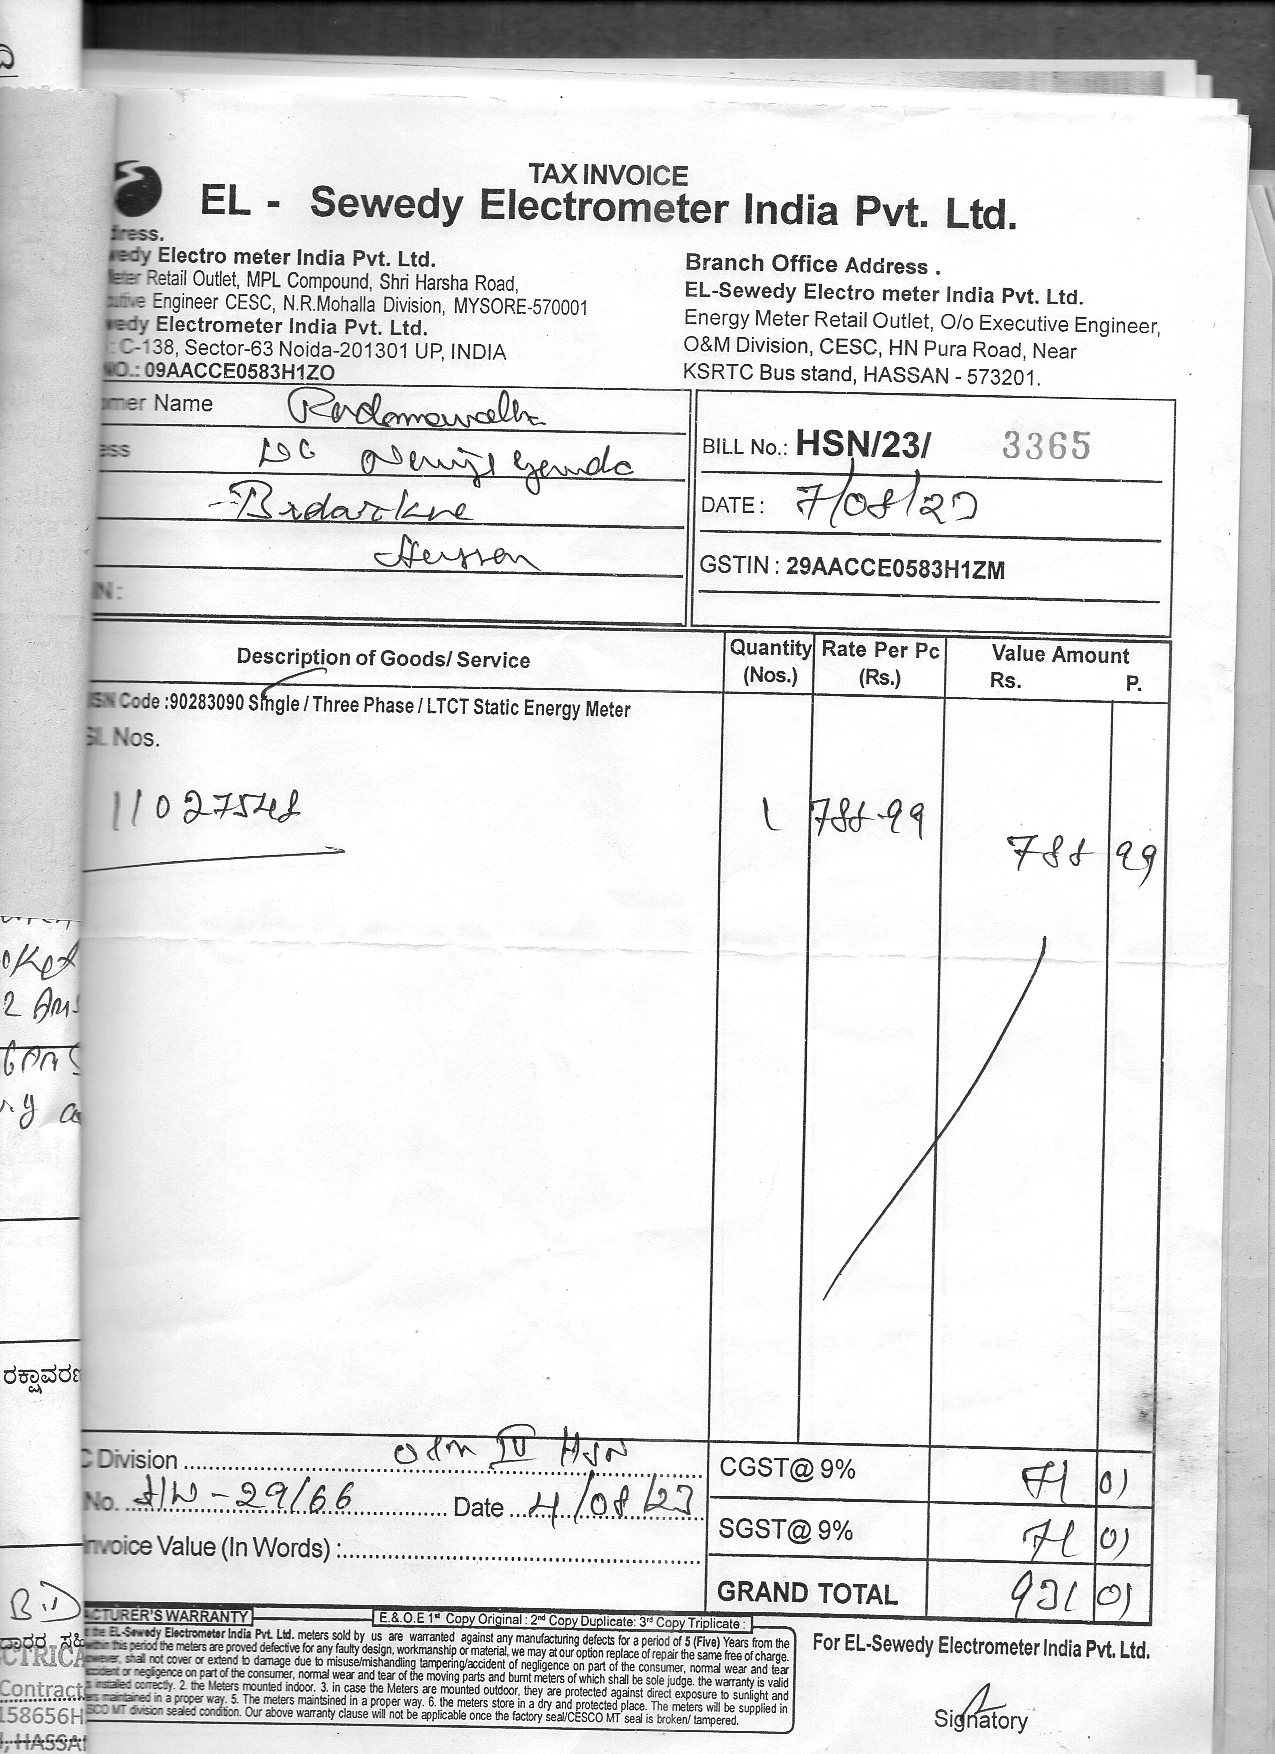 TAX INVOICE
EL - Sewedy Electrometer India Pvt. Ltd.
Electro meter India Pvt. Ltd.
Retail Outlet, MPL Compound, Shri Harsha Road,
Engineer CESC, N.R.Mohalla Division, MYSORE-570001
Electrometer India Pvt. Ltd.
C-138, Sector-63 Noida-201301 UP, INDIA
NO.: 09AACCE0583H1ZO
Branch Office Address .
EL-Sewedy Electro meter India Pvt. Ltd.
Energy Meter Retail Outlet, O/o Executive Engineer,
O&M Division, CESC, HN Pura Road, Near
KSRTC Bus stand, HASSAN - 573201.
Name
BILL No.: HSN/23/ 3365
DATE : 7/08/23
GSTIN : 29AACCE0583H1ZM
Description of Goods/ Service
Quantity (Nos.)
Rate Per Pc (Rs.)
Value Amount
Rs. P.
Code :90283090 Single / Three Phase / LTCT Static Energy Meter
Sl. Nos.
11027548 1 788-99 788 99
Division O&M IV HSN
No. 29/66 Date 4/08/23
Invoice Value (In Words) :
CGST@ 9% 71 01
SGST@ 9% 71 01
GRAND TOTAL 931 01
E.& O.E 1st Copy Original : 2nd Copy Duplicate: 3rd Copy Triplicate :
MANUFACTURER'S WARRANTY
EL-Sewedy Electrometer India Pvt. Ltd. meters sold by us are warranted against any manufacturing defects for a period of 5 (Five) Years from the
this period the meters are proved defective for any faulty design, workmanship or material, we may at our option replace of repair the same free of charge.
however, shall not cover or extend to damage due to misuse/mishandling tampering/accident of negligence on part of the consumer, normal wear and tear
accident or negligence on part of the consumer, normal wear and tear of the moving parts and burnt meters of which shall be sole judge. the warranty is valid
installed correctly. 2. the Meters mounted indoor. 3. in case the Meters are mounted outdoor, they are protected against direct exposure to sunlight and
maintained in a proper way. 5. The meters maintsined in a proper way. 6. the meters store in a dry and protected place. The meters will be supplied in
MT division sealed condition. Our above warranty clause will not be applicable once the factory seal/CESCO MT seal is broken/ tampered.
For EL-Sewedy Electrometer India Pvt. Ltd.
Signatory
ರಕ್ಷಾವರಣ
Contract
158656H